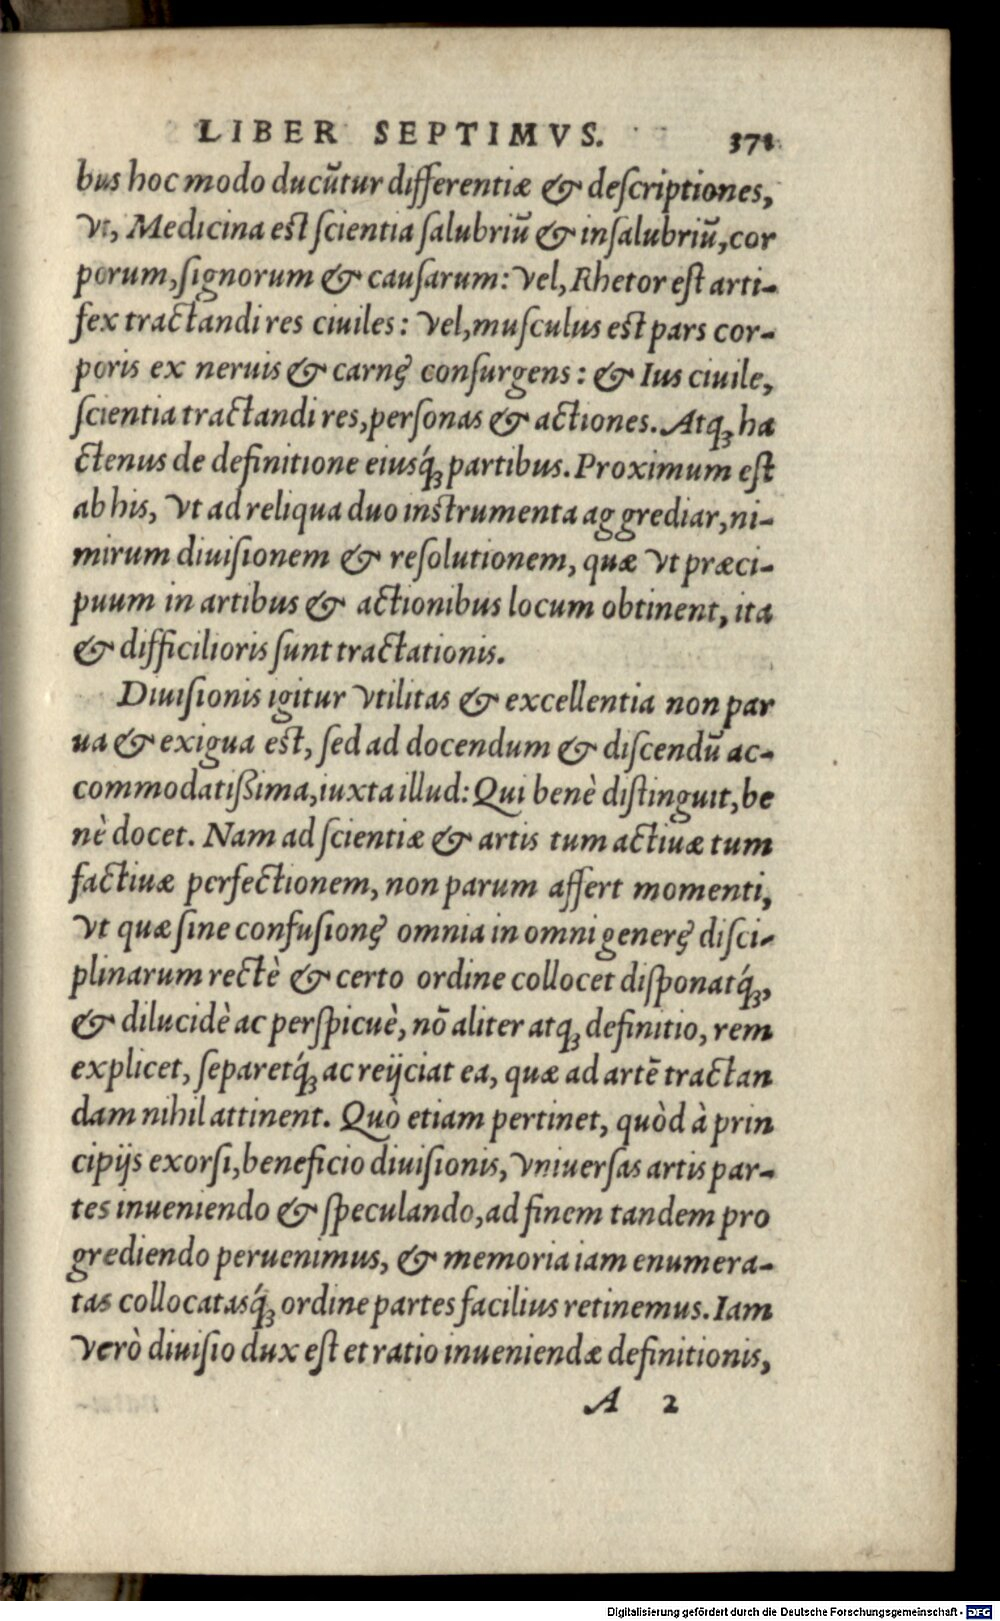 LIBER SEPTIMVS. 371
bus hoc modo ducūtur differentiæ & descriptiones,
Vt, Medicina est scientia salubriū & insalubriū, cor
porum, signorum & causarum: Vel, Rhetor est arti-
fex tractandi res ciuiles: Vel, musculus est pars cor-
poris ex neruis & carnę consurgens: & Ius ciuile,
scientia tractandi res, personas & actiones. Atq́; ha
ctenus de definitione eiusq́; partibus. Proximum est
ab his, Vt ad reliqua duo instrumenta aggrediar, ni-
mirum diuisionem & resolutionem, quæ Vt præci-
puum in artibus & actionibus locum obtinent, ita
& difficilioris sunt tractationis.
Diuisionis igitur Vtilitas & excellentia non par
ua & exigua est, sed ad docendum & discendū ac-
commodatißima, iuxta illud: Qui benè distinguit, be
nè docet. Nam ad scientiæ & artis tum actiuæ tum
factiuæ perfectionem, non parum affert momenti,
Vt quæ sine confusionę omnia in omni generę disci-
plinarum rectè & certo ordine collocet disponatq́;,
& dilucidè ac perspicuè, nō aliter atq; definitio, rem
explicet, separetq́; ac reijciat ea, quæ ad artē tractan
dam nihil attinent. Quò etiam pertinet, quòd à prin
cipijs exorsi, beneficio diuisionis, Vniuersas artis par-
tes inueniendo & speculando, ad finem tandem pro
grediendo peruenimus, & memoria iam enumera-
tas collocatasq́; ordine partes facilius retinemus. Iam
Verò diuisio dux est et ratio inueniendæ definitionis,
A 2
Digitalisierung gefördert durch die Deutsche Forschungsgemeinschaft - DFG